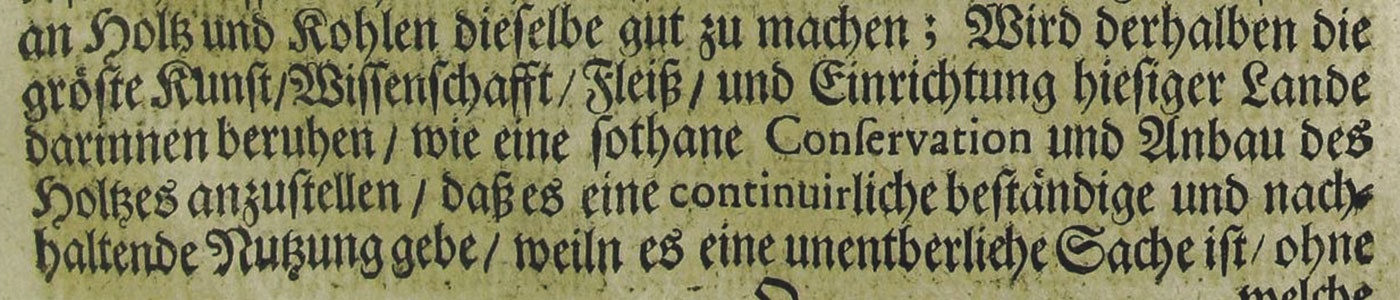 an Holtz und Kohlen dieselbe gut zu machen; Wird derhalben die
gröste Kunst/Wissenschafft/Fleiß/und Einrichtung hiesiger Lande
darinnen beruhen/wie eine sothane Conservation und Anbau des
Holtzes anzustellen/daß es eine continuirliche beständige und nach-
haltende Nutzung gebe/weiln es eine unentberliche Sache ist/ohne
welche